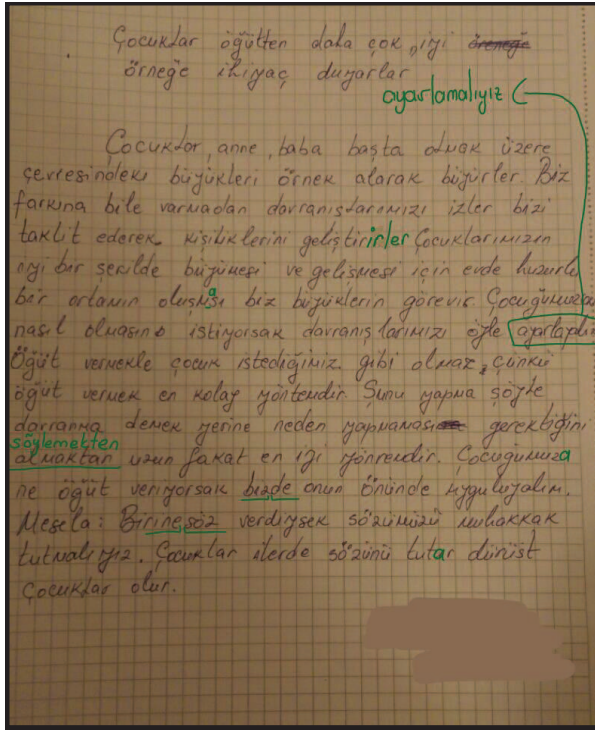 Çocuklar öğütten daha çok, iyi örneğe
örneğe ihiyaç duyarlar
ayarlamalıyız
Çocuklar, anne, baba başta olmak üzere
çevresindeki büyükleri örnek alarak büyürler. Biz
farkına bile varmadan davranışlarımızı izler bizi
taklit ederek kişiliklerini geliştirirler Çocuklarımızın
iyi bir şekilde büyümesi ve gelişmesi için evde huzurlu
bir ortamın oluşması biz büyüklerin görevir. Çocuğumuzun
nasıl olmasını istiyorsak davranışlarımızı öyle
Öğüt vermekle çocuk istediğimiz gibi olmaz, çünkü
öğüt vermek en kolay yöntemdir. Şunu yapma şöyle
davranma demek yerine neden yapmaması gerektiğini
söylemekten
almaktan uzun fakat en iyi yönremdir. Çocuğumuza
ne öğüt veriyorsak bizde onun önünde uyguluyalım.
Mesela: Birine söz verdiysek sözümüzü muhakkak
tutmalıyız. Çocuklar ilerde sözünü tutar dürüst
Çocuklar olur.